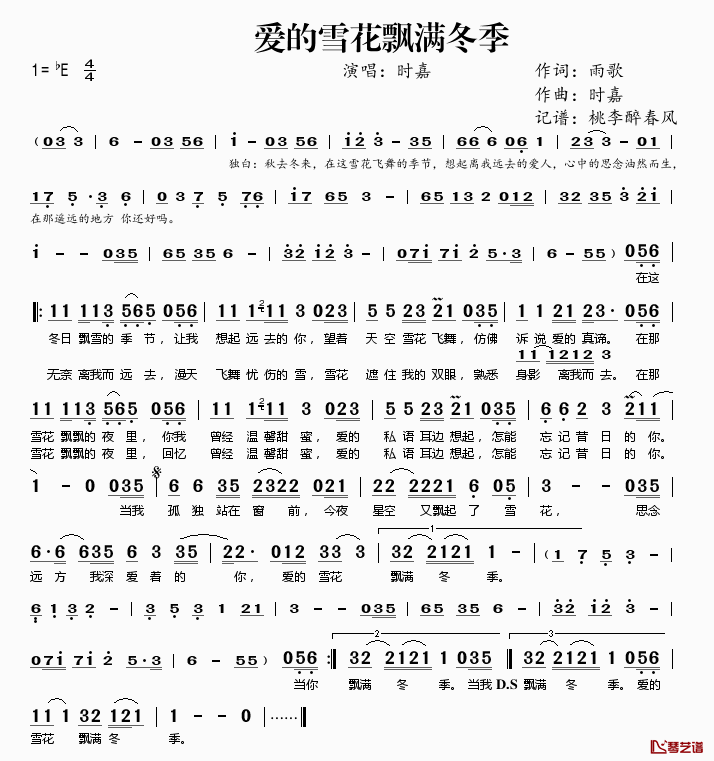 爱的雪花飘满冬季
1=♭E 4/4 演唱：时嘉 作词：雨歌
作曲：时嘉
记谱：桃李醉春风
（033 | 6 - 03 56 | i - 03 56 | i2 3 - 35 | 66 6 06 1 | 23 3 - 01 |
独白：秋去冬来，在这雪花飞舞的季节，想起离我远去的爱人，心中的思念油然而生，
17 5 ·3 6 | 0 3 7 5 76 | i7 65 3 - | 65 13 2 012 | 32 35 3 2i |
在那遥远的地方 你还好吗。
i - - 035 | 65 35 6 - | 32 i2 3 - | 07i 7i 2 5·3 | 6 - - 55） | 056 |
在这
‖: 11 113 565 056 | 11 1 2 11 3 023 | 5 5 23 21 035 | 1 1 21 23· 056 |
冬日 飘雪的 季 节，让我 想起 远 去的 你，望着 天 空 雪花 飞舞，仿佛 诉 说 爱的 真谛。 在那
11 1212 3
无奈 离我而 远 去，漫天 飞舞 忧伤的 雪，雪花 遮 住 我的 双眼，熟悉 身影 离我而 去。在那
11 113 565 056 | 11 1 2 11 3 023 | 5 5 23 21 035 | 6 6 2 3 211 |
雪花 飘飘的 夜 里，你我 曾经 温馨甜 蜜，爱的 私 语 耳边 想起，怎能 忘 记 昔 日 的 你。
雪花 飘飘的 夜 里，回忆 曾经 温馨甜 蜜，爱的 私 语 耳边 想起，怎能 忘 记 昔 日 的 你。
1 - 0 035 | 6 6 35 2322 021 | 22 2221 6 05 | 3 - - 035 |
当我 孤 独 站在 窗 前，今夜 星空 又飘起 了 雪 花， 思念
1
6·6 635 6 3 35 | 22· 012 33 3 | 32 2121 1 - | （1 7 5 3 - |
远 方 我深 爱 着 的 你， 爱的 雪花 飘满 冬 季。
6 1 3 2 - | 3 5 3 1 21 | 3 - - 035 | 65 35 6 - | 32 i2 3 - |
2 3
07i 7i 2 5·3 | 6 - - 55） | 056 :‖ 32 2121 1 035 ‖ 32 2121 1 056 |
当你 飘满 冬 季。当我 D.S 飘满 冬 季。爱的
11 1 32 121 | 1 - - 0 | ······ ‖
雪花 飘满 冬 季。
琴艺谱